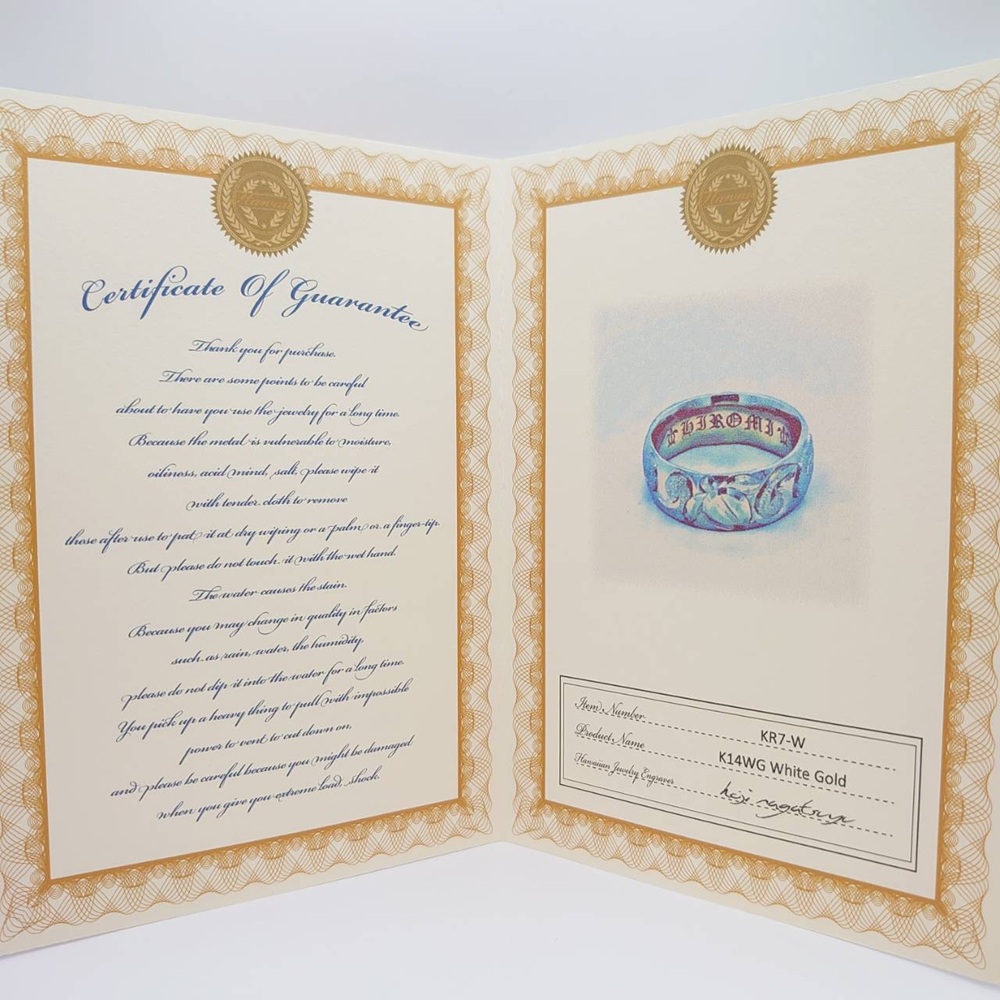 Certificate Of Guarantee
Thank you for purchase.
There are some points to be careful
about to have you use the jewelry for a long time.
Because the metal is vulnerable to moisture,
oiliness, acid mind, salt, please wipe it
with tender cloth to remove
these after use to pat it at dry wiping or a palm or a finger-tip.
But please do not touch it with the wet hand.
The water causes the stain.
Because you may change in quality in factors
such as rain, water, the humidity,
please do not dip it into the water for a long time.
You pick up a heavy thing to pull with impossible
power to vent to cut down on,
and please be careful because you might be damaged
when you give you extreme load, shock.
HIROMI
Item Number
KR7-W
Product Name
K14WG White Gold
Hawaiian Jewelry Engraver
koji nagatsuji